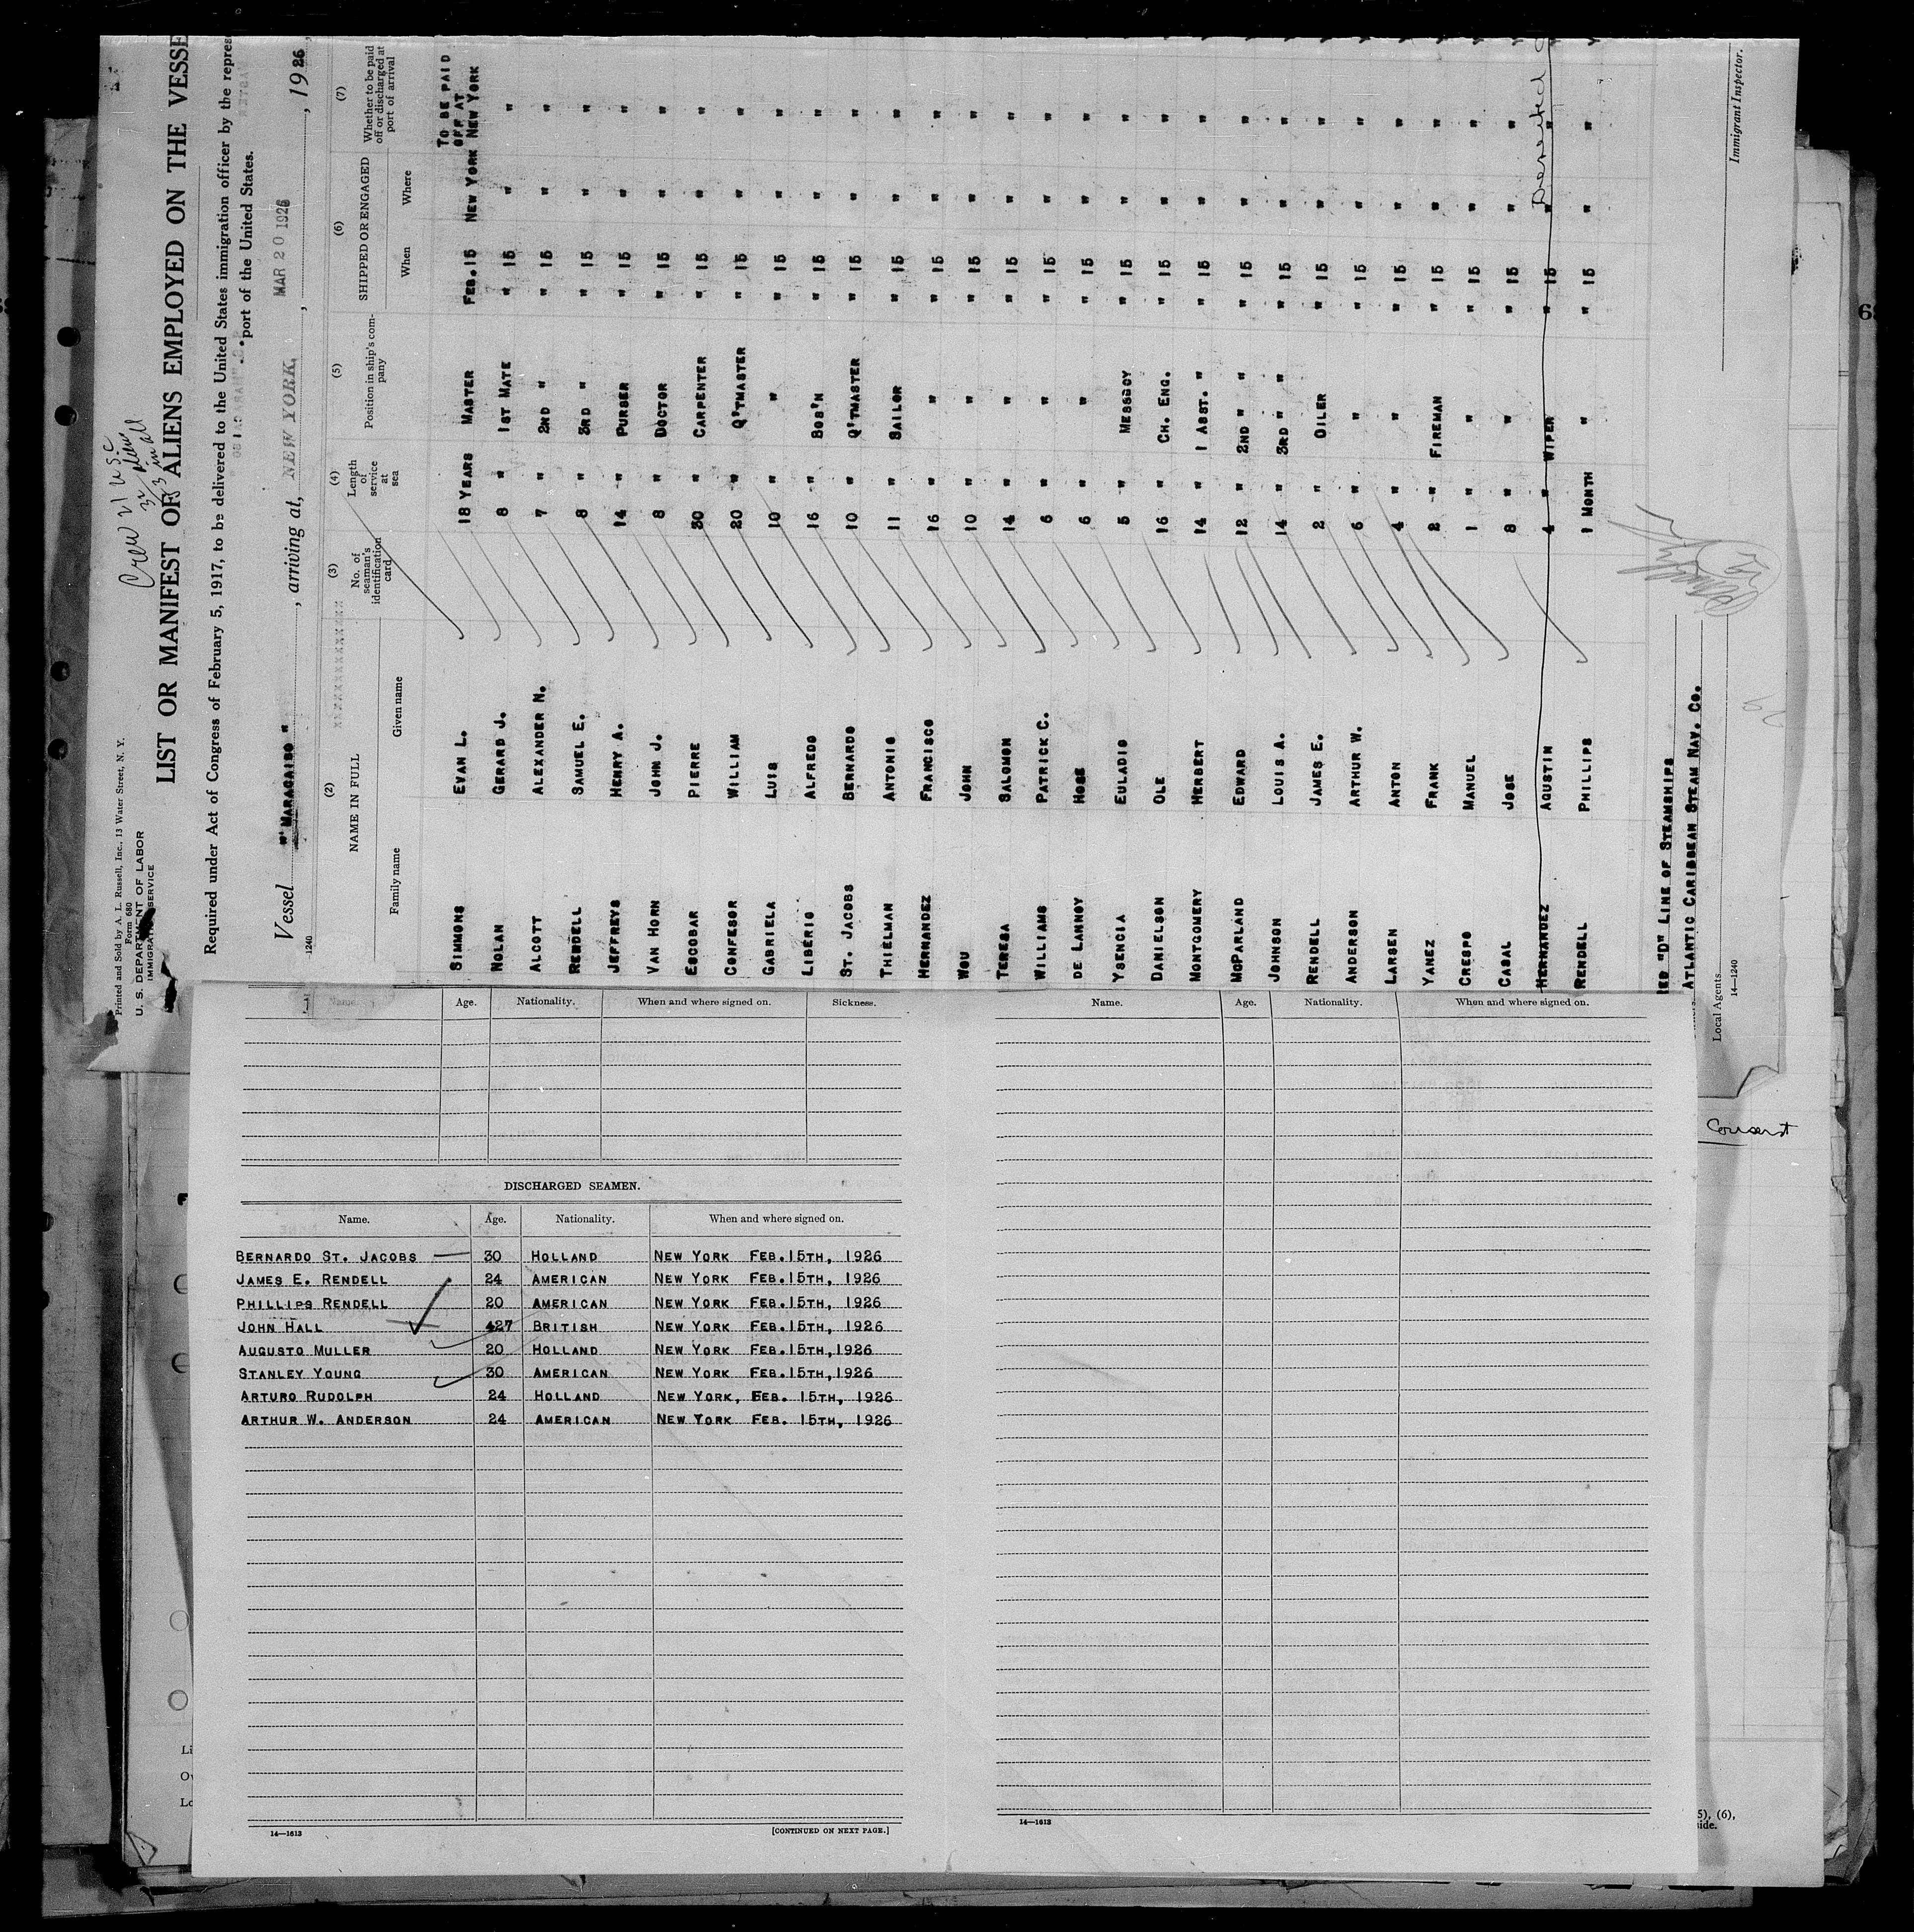 Crew 21 U.S.C
32 aliens
53 in all
Printed and Sold by A. L. Russell, Inc., 13 Water Street, N. Y.
Form 680
U. S. DEPARTMENT OF LABOR
IMMIGRATION SERVICE
LIST OR MANIFEST OF ALIENS EMPLOYED ON THE VESSE
Required under Act of Congress of February 5, 1917, to be delivered to the United States immigration officer by the repres
port of the United States.
Vessel "MARACAIBO", arriving at, NEW YORK, MAR 20 1926, 1926,
1240
(2) (3) (4) (5) (6) (7)
NAME IN FULL No. of seaman's identification card Length of service at sea Position in ship's company SHIPPED OR ENGAGED Whether to be paid off or discharged at port of arrival
Family name Given name When Where
TO BE PAID
OFF AT
SIMMONS EVAN L. 18 YEARS MASTER FEB. 15 NEW YORK NEW YORK
NOLAN GERARD J. 8 " 1ST MATE " 15 " "
ALCOTT ALEXANDER N. 7 " 2ND " " 15 " "
RENDELL SAMUEL E. 8 " 3RD " " 15 " "
JEFFREYS HENRY A. 14 " PURSER " 15 " "
VAN HORN JOHN J. 8 " DOCTOR " 15 " "
ESCOBAR PIERRE 30 " CARPENTER " 15 " "
CONFESOR WILLIAM 20 " Q'TMASTER " 15 " "
GABRIELA LUIS 10 " " " 15 " "
LIBERIO ALFREDO 16 " BOS'N " 15 " "
ST. JACOBS BERNARDO 10 " Q'TMASTER " 15 " "
THIELMAN ANTONIO 11 " SAILOR " 15 " "
HERNANDEZ FRANCISCO 16 " " " 15 " "
WOU JOHN 10 " " " 15 " "
TERESA SALOMON 14 " " " 15 " "
WILLIAMS PATRICK C. 6 " " " 15 " "
DE LANNOY HOSE 6 " " " 15 " "
YSENCIA EULADIO 5 " MESSBOY " 15 " "
DANIELSON OLE 16 " CH. ENG. " 15 " "
MONTGOMERY HERBERT 14 " 1 ASST. " " 15 " "
MCPARLAND EDWARD 12 " 2ND " " " 15 " "
JOHNSON LOUIS A. 14 " 3RD " " " 15 " "
RENDELL JAMES E. 2 " OILER " 15 " "
ANDERSON ARTHUR W. 6 " " " 15 " "
LARSEN ANTON 4 " " " 15 " "
YANEZ FRANK 2 " FIREMAN " 15 " "
CRESPO MANUEL 1 " " " 15 " "
CASAL JOSE 8 " " " 15 " "
HERNANDEZ AGUSTIN 4 " WIPER " 15 " " Deserted
RENDELL PHILLIPS 1 MONTH " " 15 " "
RED "D" LINE OF STEAMSHIPS
ATLANTIC CARIBBEAN STEAM NAV. CO.
Local Agents
14—1240
Immigrant Inspector.
Name. Age. Nationality. When and where signed on. Sickness.
DISCHARGED SEAMEN.
Name. Age. Nationality. When and where signed on.
BERNARDO ST. JACOBS 30 HOLLAND NEW YORK FEB.15TH, 1926
JAMES E. RENDELL 24 AMERICAN NEW YORK FEB.15TH, 1926
PHILLIPS RENDELL 20 AMERICAN NEW YORK FEB.15TH, 1926
JOHN HALL 427 BRITISH NEW YORK FEB.15TH, 1926
AUGUSTO MULLER 20 HOLLAND NEW YORK FEB.15TH,1926
STANLEY YOUNG 30 AMERICAN NEW YORK FEB.15TH,1926
ARTURO RUDOLPH 24 HOLLAND NEW YORK, FEB. 15TH, 1926
ARTHUR W. ANDERSON 24 AMERICAN NEW YORK FEB. 15TH, 1926
14—1613
[CONTINUED ON NEXT PAGE.]
Name. Age. Nationality. When and where signed on.
14—1613
Consent
5), (6),
side.
Li
Ov
Lo
68